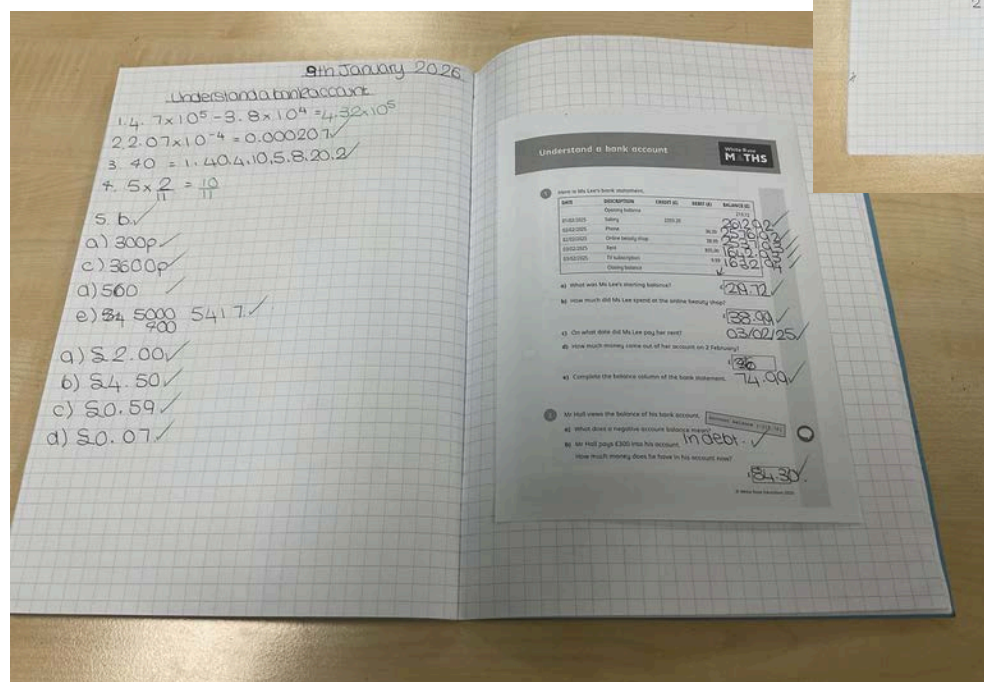 9th January 2026
Understand a bank account
1. 4.7x10⁵ - 3.8x10⁴ = 4.32x10⁵
2. 2.07x10⁻⁴ = 0.000207
3. 40 = 1.40,4.10,5.8.20.2
4. 5 x 2/11 = 10/11
5. b.
a) 300p
c) 3600p
d) 560
e) 5000 5417.
900
a) £2.00
b) £4.50
c) £0.59
d) £0.07
Understand a bank account
White Rose
MATHS
1 Here is Ms Lee's bank statement.
DATE DESCRIPTION CREDIT (£) DEBIT (£) BALANCE (£)
Opening balance
01/02/2025 Salary
02/02/2025 Phone
02/02/2025 Online beauty shop
03/02/2025 Rent
03/02/2025 TV subscription
Closing balance
a) What was Ms Lee's starting balance?
b) How much did Ms Lee spend at the online beauty shop?
£38.99
c) On what date did Ms Lee pay her rent?
03/02/25
d) How much money came out of her account on 2 February?
e) Complete the balance column of the bank statement.
74.99
Mr Hall views the balance of his bank account.
a) What does a negative account balance mean?
In debt.
b) Mr Hall pays £300 into his account.
How much money does he have in his account now?
£84.30
2